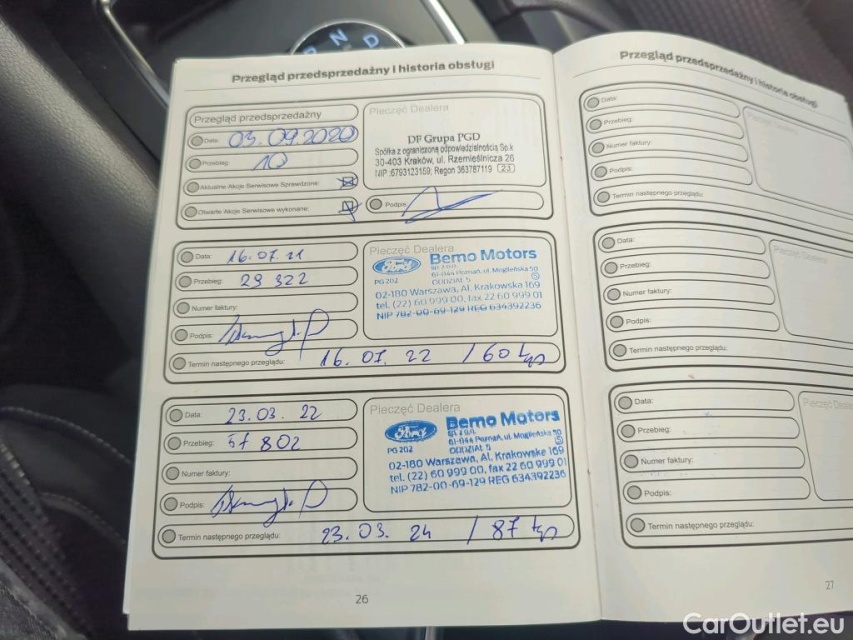 P N D
Przegląd przedsprzedażny i historia obsługi
Przegląd przedsprzedażny
Data: 03.09.2020
Przebieg: 10
Aktualne Akcje Serwisowe Sprawdzone:
Otwarte Akcje Serwisowe wykonane:
Pieczęć Dealera
DF Grupa PGD
Spółka z ograniczoną odpowiedzialnością Sp.k
30-403 Kraków, ul. Rzemieślnicza 26
NIP :6793123159; Regon 363787119 (23)
Podpis
Data: 16.07.21
Przebieg: 29 322
Numer faktury:
Podpis:
Termin następnego przeglądu: 16.07. 22 / 60
Pieczęć Dealera
Ford
PG 202
Bemo Motors
SP. Z O.O.
61-044 Poznań, ul. Mogileńska 50
ODDZIAŁ 5
02-180 Warszawa, Al. Krakowska 169
tel. (22) 60 999 00, fax 22 60 999 01
NIP 782-00-69-129 REG 634392236
Data: 23.03. 22
Przebieg: 57 802
Numer faktury:
Podpis:
Termin następnego przeglądu: 23. 03. 24 / 87
Pieczęć Dealera
Ford
PG 202
Bemo Motors
SP. Z O.O.
61-044 Poznań, ul. Mogileńska 50
ODDZIAŁ 5
02-180 Warszawa, Al. Krakowska 169
tel. (22) 60 999 00, fax 22 60 999 01
NIP 782-00-69-129 REG 634392236
26
Przegląd przedsprzedażny i historia obsługi
Data:
Przebieg:
Numer faktury:
Podpis:
Termin następnego przeglądu:
Pieczęć Dealera
Data:
Przebieg:
Numer faktury:
Podpis:
Termin następnego przeglądu:
Pieczęć Dealera
Data:
Przebieg:
Numer faktury:
Podpis:
Termin następnego przeglądu:
Pieczęć Dealera
27
CarOutlet.eu